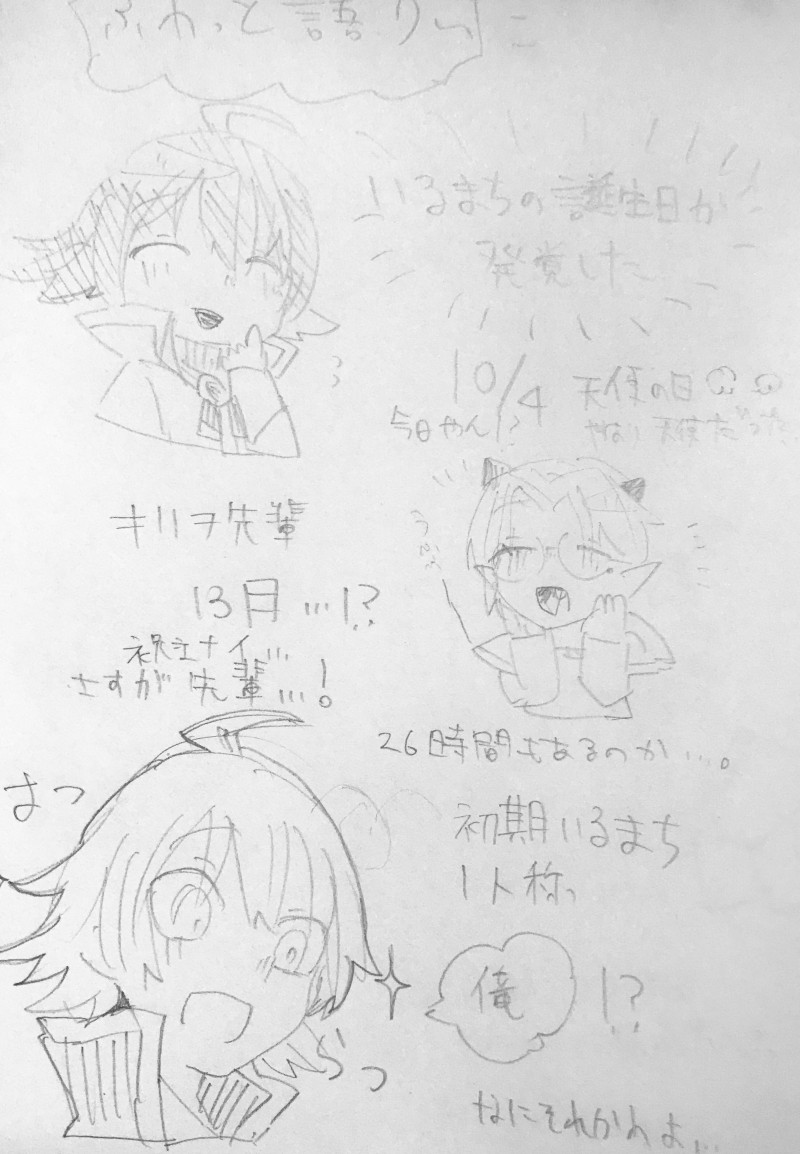 ふわっと語りたい
いるまちの誕生日が
発覚した
10/4 天使の日
今日やん!? やはり天使だった
キリヲ先輩
13月…!?
さすが先輩…!
26時間もあるのか…。
はっ
初期いるまち
1人称
俺 !?
なにそれかわよ…